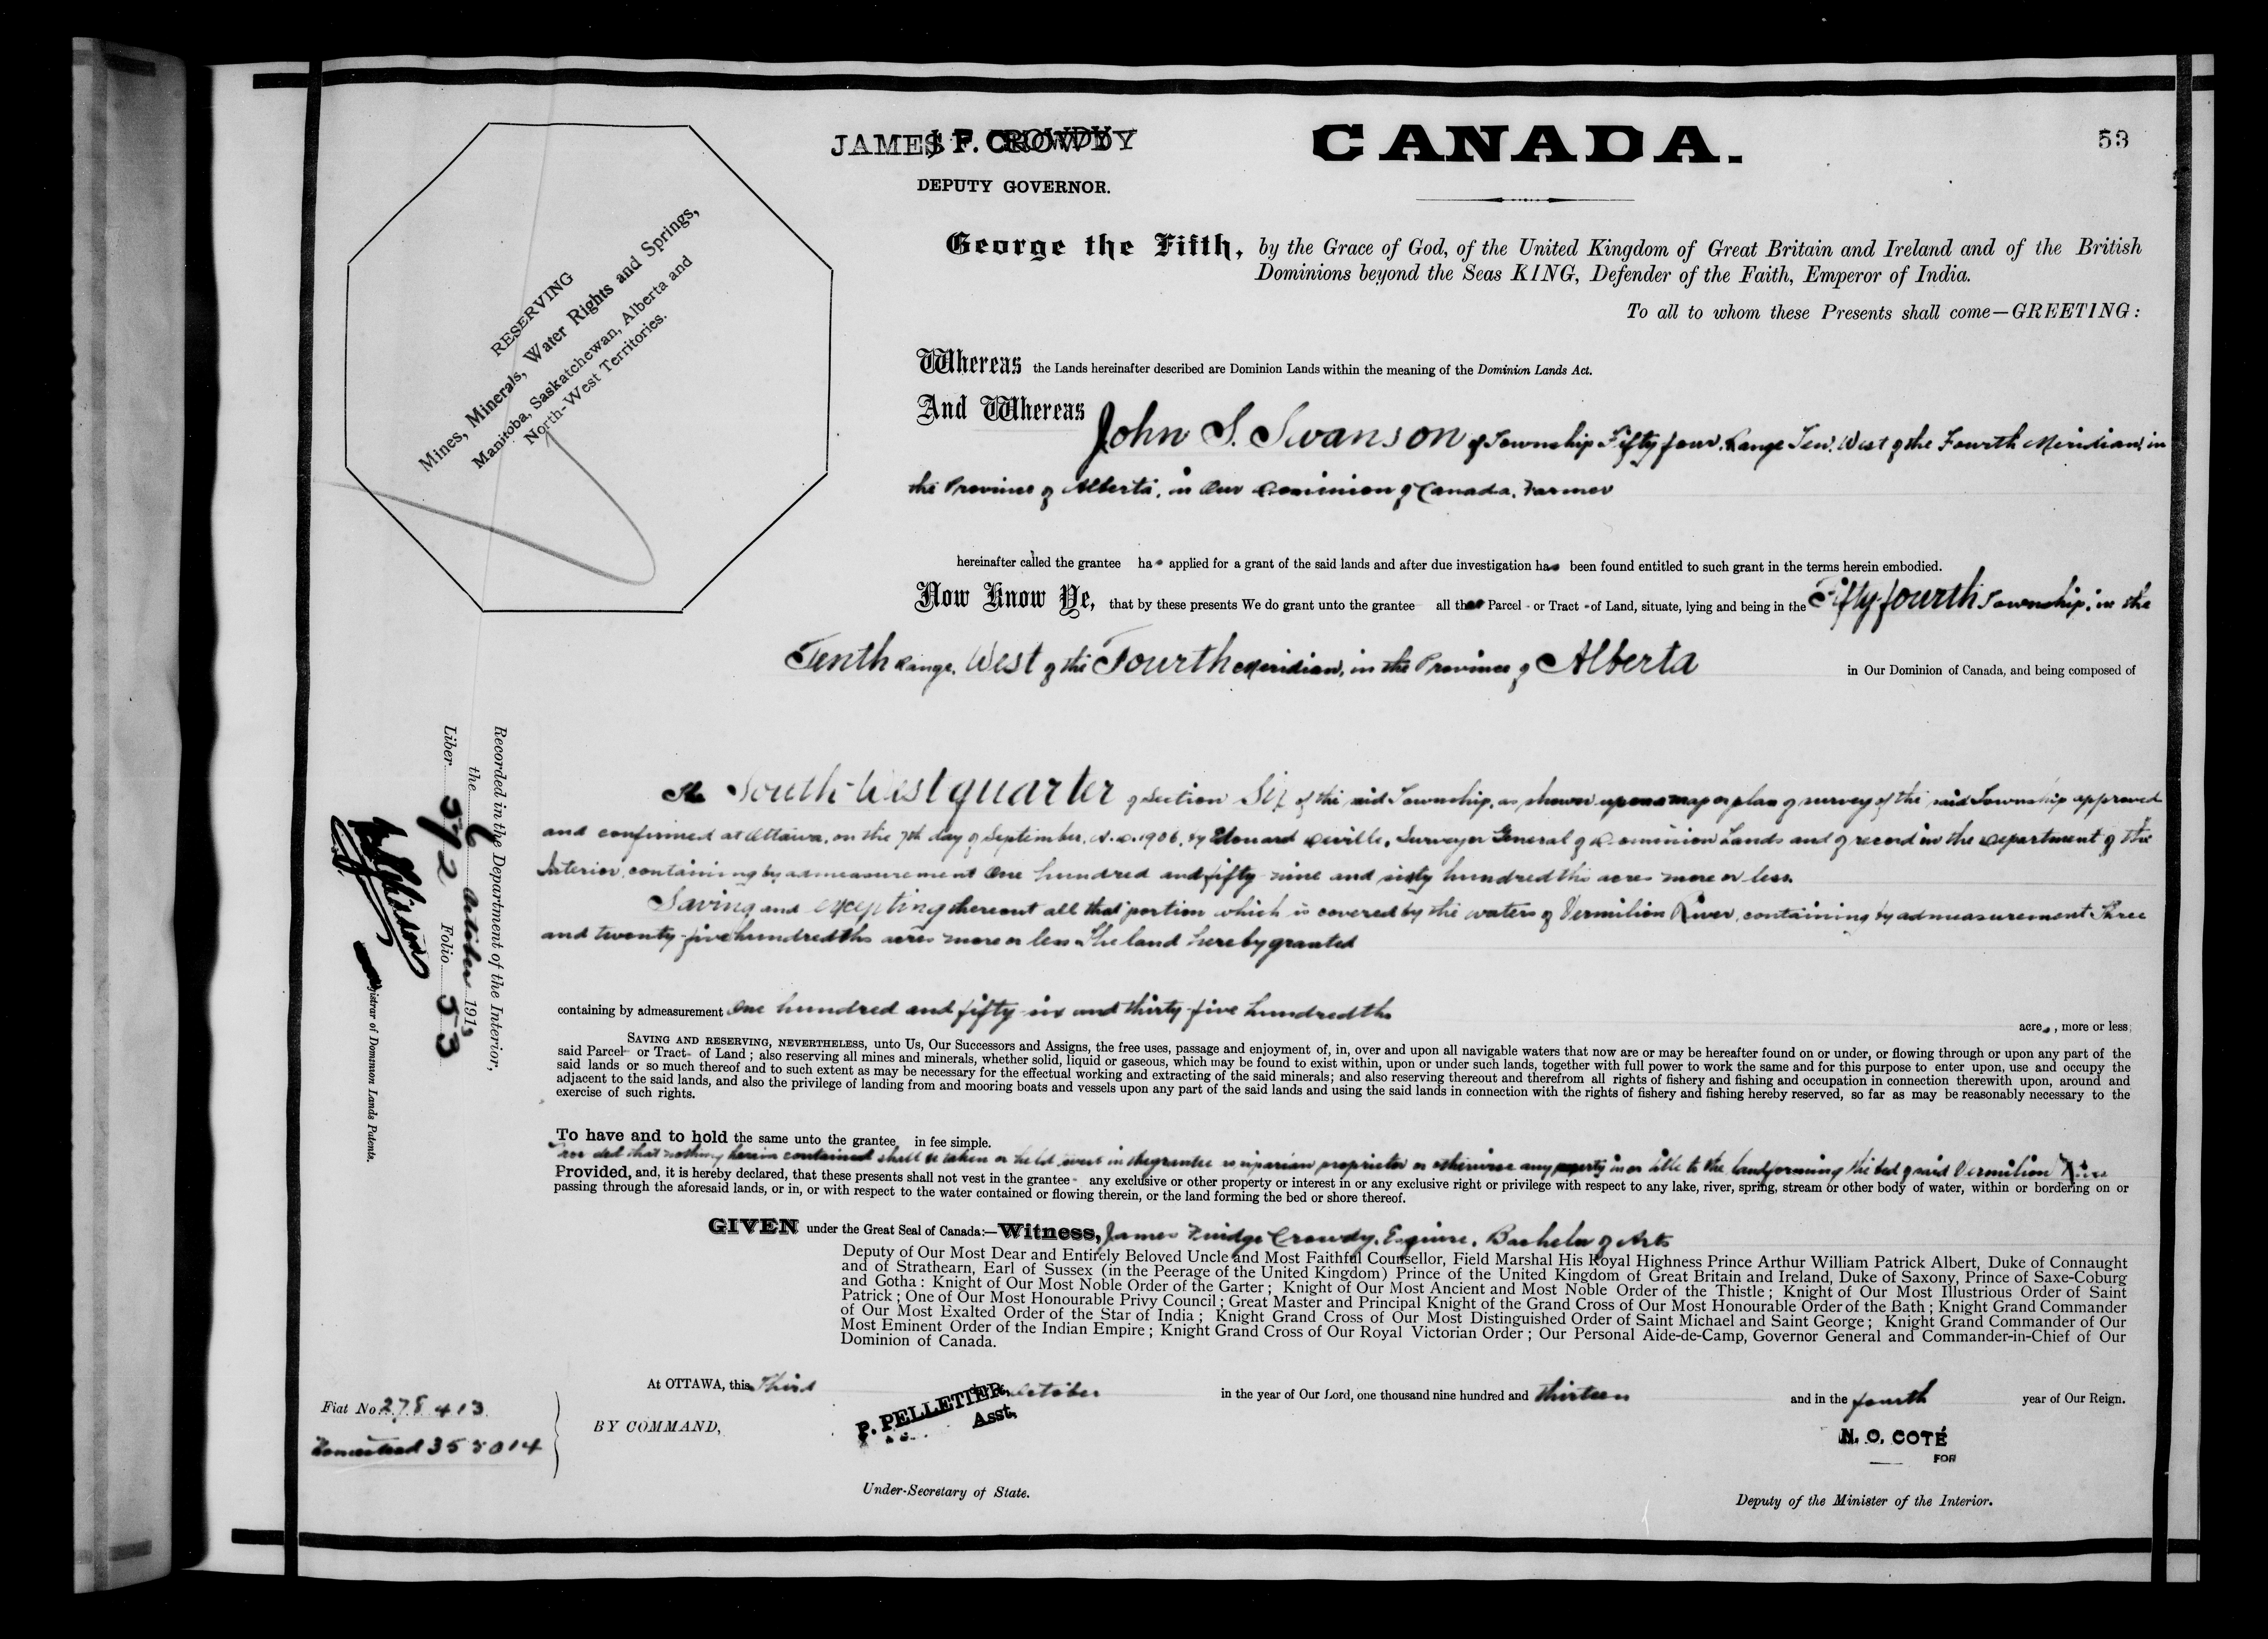 JAMES F. CROWDY
DEPUTY GOVERNOR.
CANADA.
53
RESERVING
Mines, Minerals, Water Rights and Springs,
Manitoba, Saskatchewan, Alberta and
North-West Territories.
George the Fifth, by the Grace of God, of the United Kingdom of Great Britain and Ireland and of the British
Dominions beyond the Seas KING, Defender of the Faith, Emperor of India.
To all to whom these Presents shall come—GREETING:
Whereas the Lands hereinafter described are Dominion Lands within the meaning of the Dominion Lands Act.
And Whereas John S. Swanson of Township Fifty four, Range Ten, West of the Fourth Meridian, in
the Province of Alberta, in Our Dominion of Canada, Farmer
hereinafter called the grantee has applied for a grant of the said lands and after due investigation has been found entitled to such grant in the terms herein embodied.
Now Know Ye, that by these presents We do grant unto the grantee all that Parcel or Tract of Land, situate, lying and being in the Fifty-fourth Township, in the
Tenth Range, West of the Fourth Meridian, in the Province of Alberta in Our Dominion of Canada, and being composed of
The South-West quarter of Section Six of the said Township, as shown upon a map or plan of survey of the said Township approved
and confirmed at Ottawa, on the 7th day of September, A.D. 1906, by Edouard Deville, Surveyor General of Dominion Lands and of record in the Department of the
Interior, containing by admeasurement One hundred and fifty nine and sixty hundredths acres more or less.
Saving and excepting thereout all that portion which is covered by the waters of Vermilion River, containing by admeasurement Three
and twenty-five hundredths acres more or less. The land hereby granted
containing by admeasurement One hundred and fifty six and thirty-five hundredths
acres, more or less;
SAVING AND RESERVING, NEVERTHELESS, unto Us, Our Successors and Assigns, the free uses, passage and enjoyment of, in, over and upon all navigable waters that now are or may be hereafter found on or under, or flowing through or upon any part of the
said Parcel or Tract of Land; also reserving all mines and minerals, whether solid, liquid or gaseous, which may be found to exist within, upon or under such lands, together with full power to work the same and for this purpose to enter upon, use and occupy the
said lands or so much thereof and to such extent as may be necessary for the effectual working and extracting of the said minerals; and also reserving thereout and therefrom all rights of fishery and fishing and occupation in connection therewith upon, around and
adjacent to the said lands, and also the privilege of landing from and mooring boats and vessels upon any part of the said lands and using the said lands in connection with the rights of fishery and fishing hereby reserved, so far as may be reasonably necessary to the
exercise of such rights.
To have and to hold the same unto the grantee in fee simple.
Provided that nothing herein contained shall be taken or held to vest in the grantee as riparian proprietor or otherwise any property in or title to the land forming the bed of said Vermilion River
Provided, and, it is hereby declared, that these presents shall not vest in the grantee any exclusive or other property or interest in or any exclusive right or privilege with respect to any lake, river, spring, stream or other body of water, within or bordering on or
passing through the aforesaid lands, or in, or with respect to the water contained or flowing therein, or the land forming the bed or shore thereof.
GIVEN under the Great Seal of Canada:—Witness, James Fuidge Crowdy, Esquire, Bachelor of Arts
Deputy of Our Most Dear and Entirely Beloved Uncle and Most Faithful Counsellor, Field Marshal His Royal Highness Prince Arthur William Patrick Albert, Duke of Connaught
and of Strathearn, Earl of Sussex (in the Peerage of the United Kingdom) Prince of the United Kingdom of Great Britain and Ireland, Duke of Saxony, Prince of Saxe-Coburg
and Gotha: Knight of Our Most Noble Order of the Garter; Knight of Our Most Ancient and Most Noble Order of the Thistle; Knight of Our Most Illustrious Order of Saint
Patrick; One of Our Most Honourable Privy Council; Great Master and Principal Knight of the Grand Cross of Our Most Honourable Order of the Bath; Knight Grand Commander
of Our Most Exalted Order of the Star of India; Knight Grand Cross of Our Most Distinguished Order of Saint Michael and Saint George; Knight Grand Commander of Our
Most Eminent Order of the Indian Empire; Knight Grand Cross of Our Royal Victorian Order; Our Personal Aide-de-Camp, Governor General and Commander-in-Chief of Our
Dominion of Canada.
At OTTAWA, this Third October in the year of Our Lord, one thousand nine hundred and thirteen and in the fourth year of Our Reign.
BY COMMAND,
P. PELLETIER,
Asst.
Under-Secretary of State.
N. O. COTÉ
FOR
Deputy of the Minister of the Interior.
Recorded in the Department of the Interior,
the 6 October 1913
Liber 572 Folio 53
Registrar of Dominion Lands Patents.
Fiat No. 278413
Homestead 355014